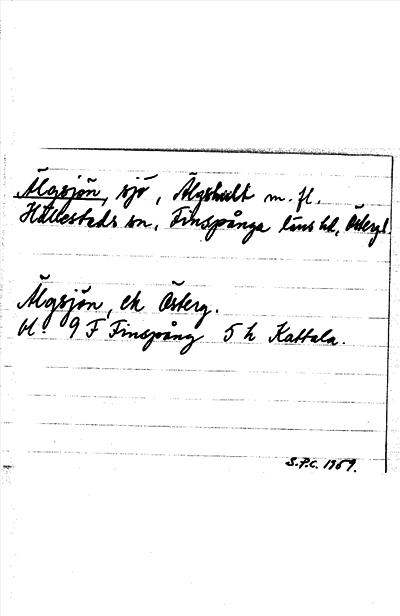 Älgsjön, sjö, Älgshult m. fl.
Hällestads sn, Finspånga läns hd, Östergl.
Älgsjön, ek Österg.
bl. 9 F Finspång 5 h Kattala.
S.P.C. 1959.